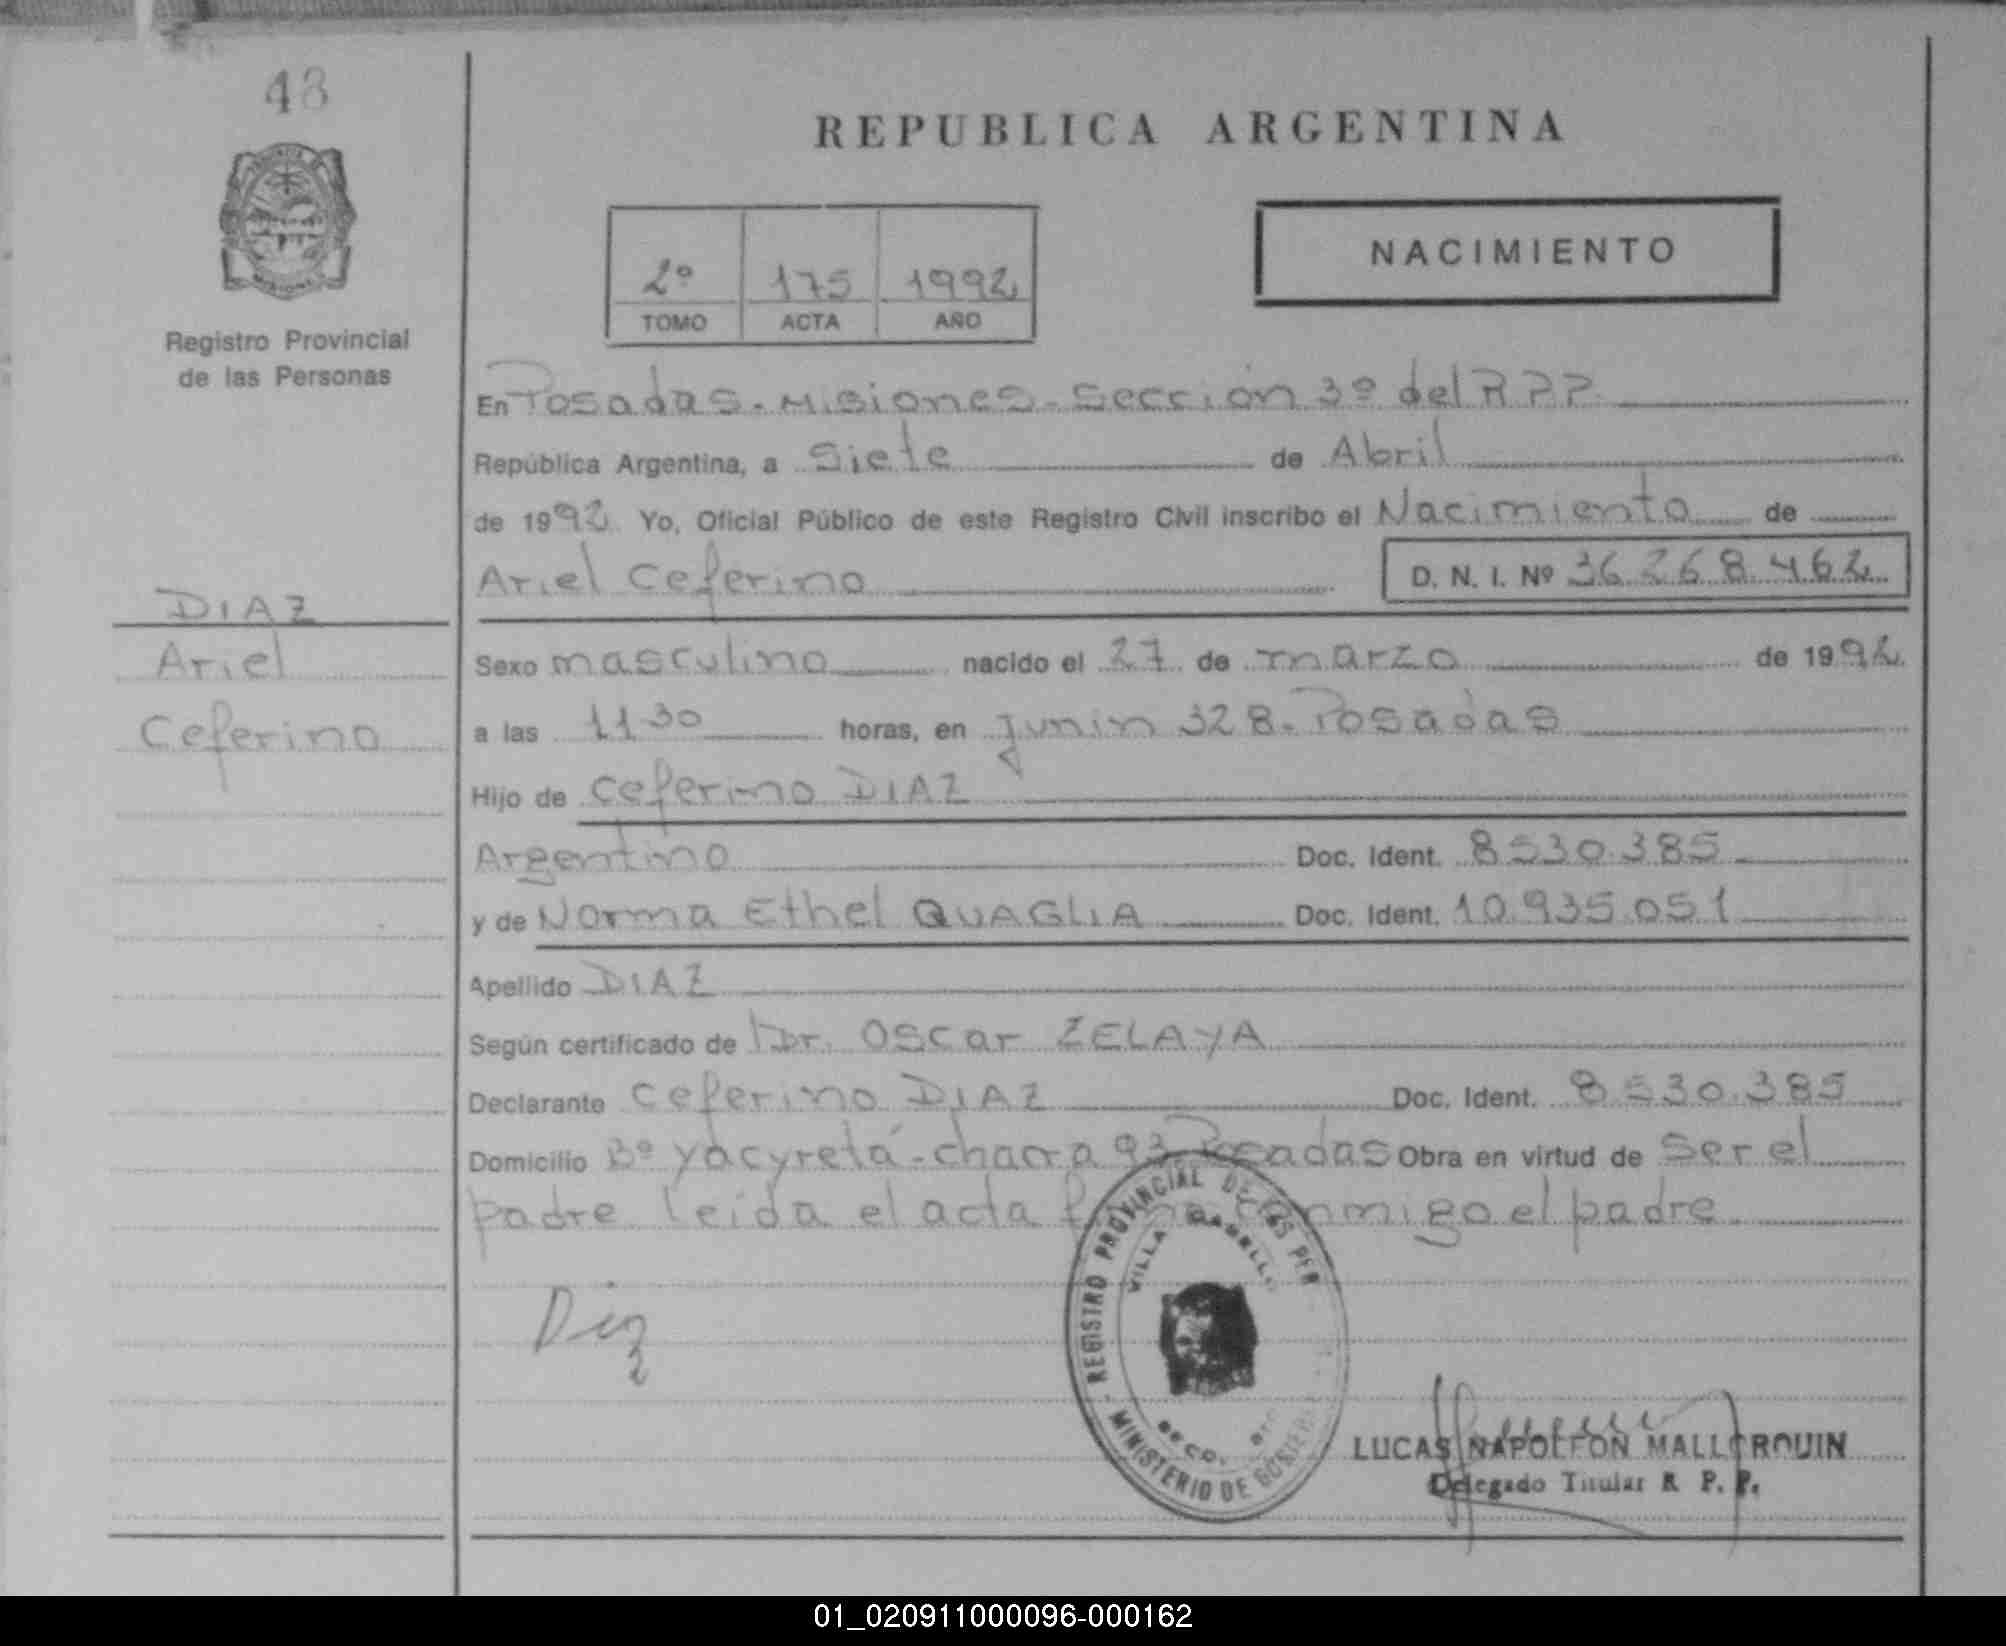 48
REPUBLICA ARGENTINA
NACIMIENTO
2º 175 1992
TOMO ACTA AÑO
Registro Provincial
de las Personas
En Posadas - Misiones - Sección 3º del R P P
República Argentina, a Siete de Abril
de 1992 Yo, Oficial Público de este Registro Civil inscribo el Nacimiento de
Ariel Ceferino D. N. I. Nº 36 268 462
DIAZ
Ariel
Ceferino
Sexo masculino nacido el 27 de marzo de 1992
a las 11 30 horas, en Junin 328 - Posadas
Hijo de Ceferino DIAZ
Argentino Doc. Ident. 8530.385
y de Norma Ethel QUAGLIA Doc. Ident. 10.935.051
Apellido DIAZ
Según certificado de Dr. Oscar ZELAYA
Declarante Ceferino DIAZ Doc. Ident. 8530.385
Domicilio Bº Yacyretá - chacra 93 Posadas Obra en virtud de Ser el
padre leida el acta firma conmigo el padre
Diaz
REGISTRO PROVINCIAL DE LAS PER
VILLA
MINISTERIO DE GOBIERNO
LUCAS NAPOLEON MALLORQUIN
Delegado Titular R. P. P.
01_020911000096-000162